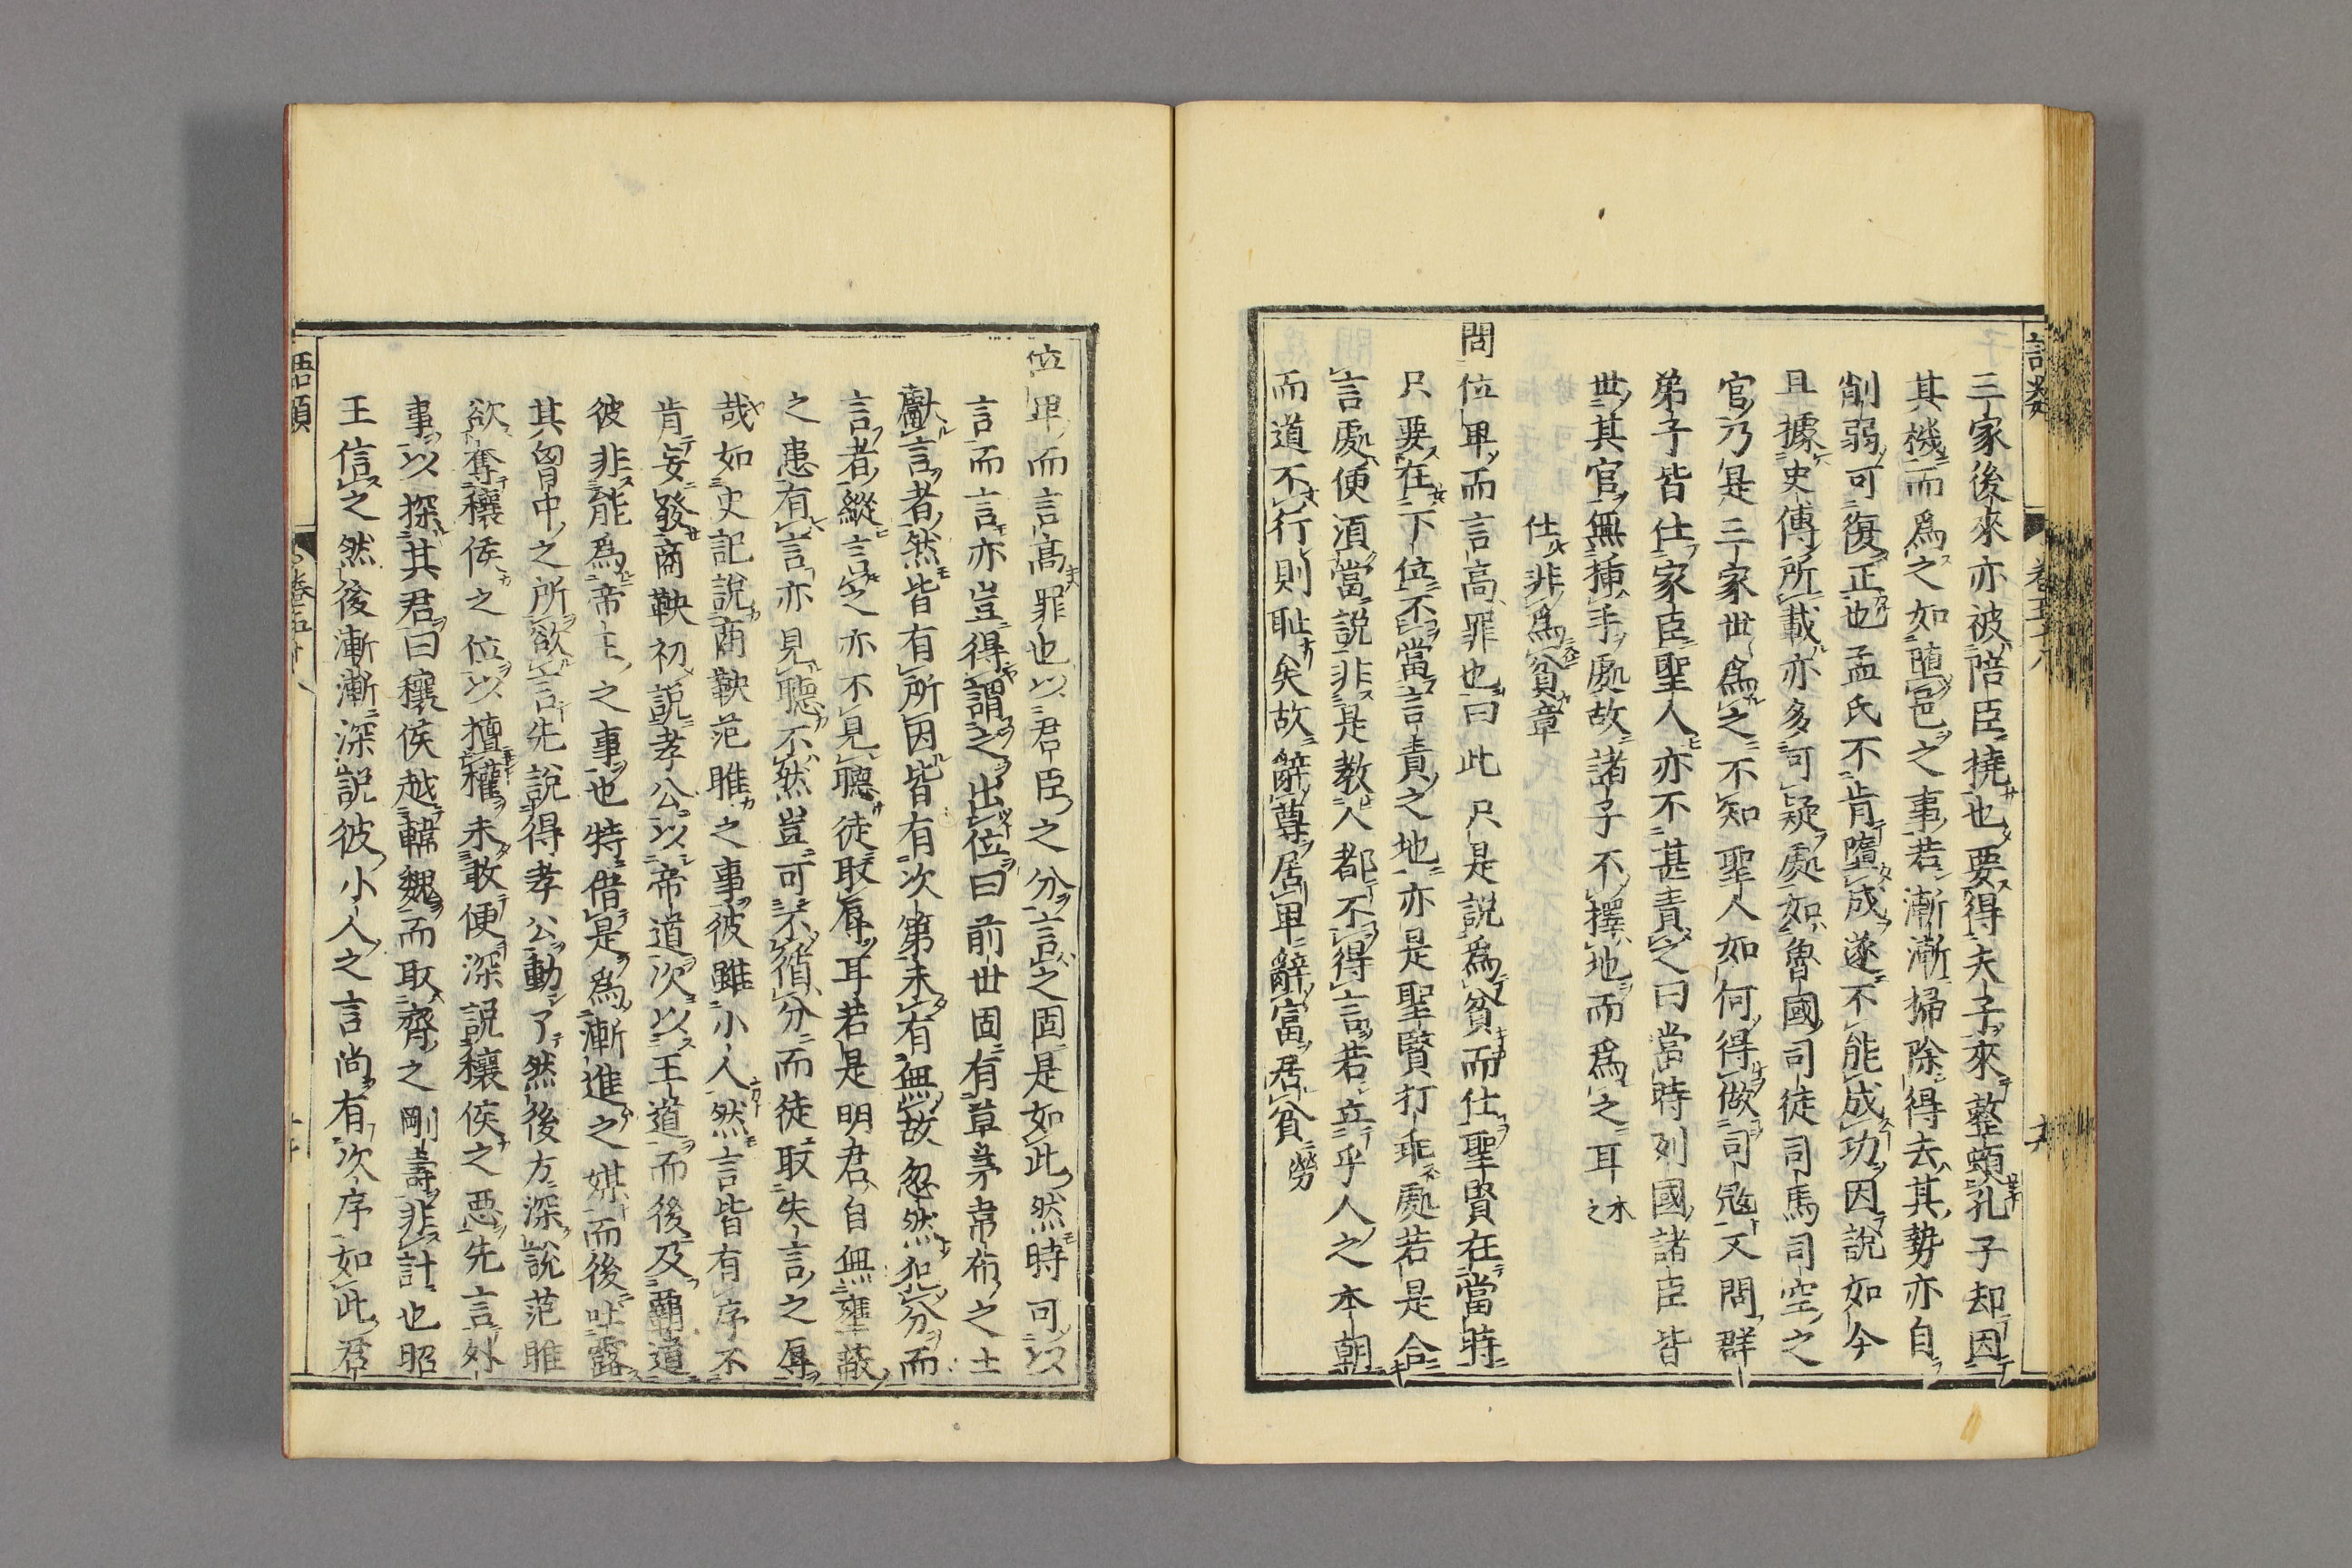 三家後來亦被陪臣撓也要得夫子來整頓孔子却因
其機而爲之如墮邑之事若漸漸掃除得去其勢亦自
削弱可復正也孟氏不肯墮成遂不能成功因說如今
且據史傳所載亦多可疑處如魯國司徒司馬司空之
官乃是三家世爲之不知聖人如何得做司寇又問群
弟子皆仕家臣聖人亦不甚責之曰當時列國諸臣皆
世其官無揷手處故諸子不擇地而爲之耳木之
仕非爲貧章
問位卑而言高罪也曰此只是說爲貧而仕聖賢在當時
只要在下位不當言責之地亦是聖賢打乖處若是合
言處便須當說非是教人都不得言若立乎人之本朝
而道不行則耻矣故辭尊居卑辭富居貧㽦
位卑而言高罪也以君臣之分言之固是如此然時可以
言而言亦豈得謂之出位曰前世固有草茅韋布之士
獻言者然皆有所因皆有次第未有無故忽然犯分而
言者縱言之亦不見聽徒取辱耳若是明君自無壅蔽
之患有言亦見聽不然豈可不循分而徒取失言之辱
哉如史記說商鞅范雎之事彼雖小人然言皆有序不
肯妄發商鞅初說孝公以帝道次以王道而後及覇道
彼非能爲帝王之事也特借是爲漸進之媒而後吐露
其胷中之所欲言先說得孝公動了然後方深說范雎
欲奪穰侯之位以擅權未敢便深說穰侯之惡先言外
事以探其君曰穰侯越韓魏而取齊之剛壽非計也昭
王信之然後漸漸深說彼小人之言尚有次序如此君